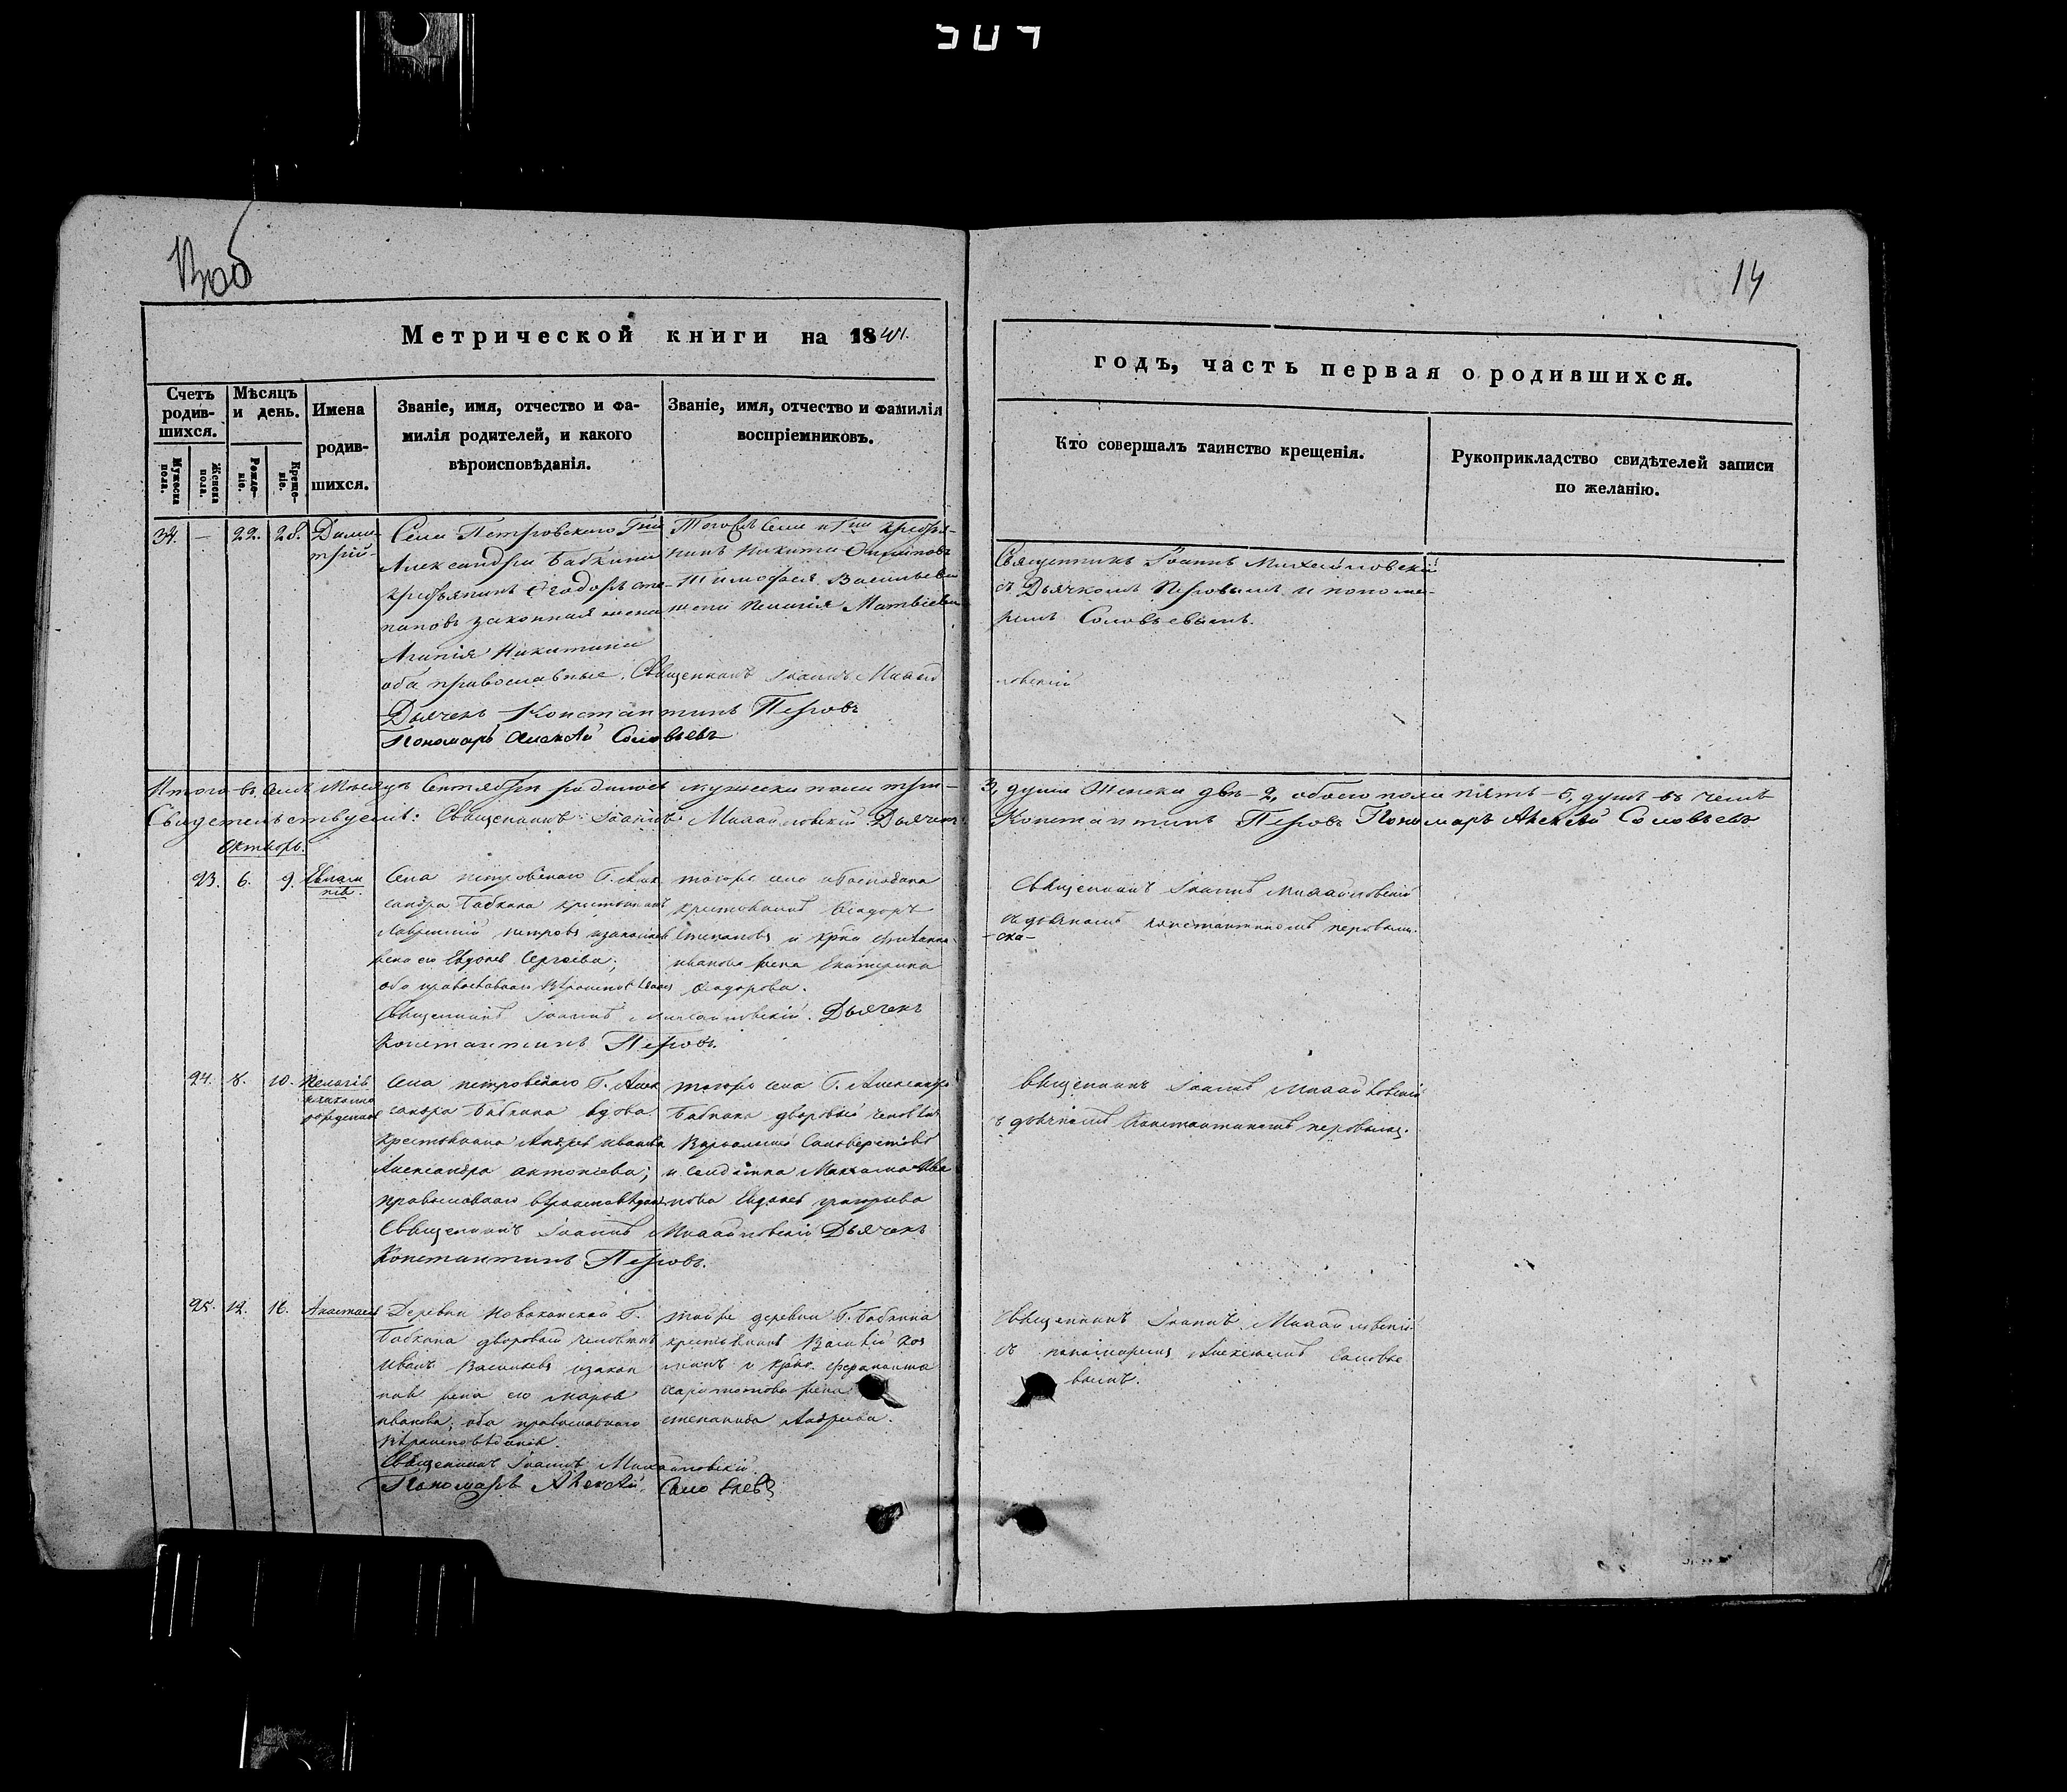 504
14
Метрической книги на 1841.
годъ, часть первая о родившихся.
Счетъ родив-шихся.
Мѣсяцъ и день.
Имена родив-шихся.
Званіе, имя, отчество и фа-
милія родителей, и какого
вѣроисповѣданія.
Званіе, имя, отчество и фамилія
воспріемниковъ.
Кто совершалъ таинство крещенія.
Рукоприкладство свидѣтелей записи
по желанію.
Мужеска пола.
Женска пола.
Рожде-ніе.
Креще-ніе.
34. — 22. 28. Дими-
трій
Села Петровскаго Гна
Александра Бабкина
крестьянинъ Ѳеодоръ Сте-
пановъ законная жена
Агапія Никитина
оба православные. Священникъ Іоаннъ Михай
ловскій
Дьячекъ Константинъ Перовъ
Пономарь Алексѣй Соловьевъ
Тогожъ села и Гна
нинъ Никита
Тимофея Васильева
жена Матвіева
Священникъ Іоаннъ Михайловскій
съ Дьячкомъ Перовымъ и понома-
ремъ Соловьевымъ.
Итого въ семъ мѣсяцѣ Сентябрѣ родилось мужеска пола три — 3, души Женска двѣ — 2, обоего пола пять — 5, душъ въ чемъ
Свидетельствуемъ: Священникъ Іоаннъ Михайловскій Дьячекъ Константинъ Перовъ Пономарь Алексѣй Соловьевъ
Октябрь.
23. 6. 9.
Села петровскаго Г. Алек
сандра Бабкина крестьянинъ
Лаврентій петровъ изаконная
жена его Евдокія Сергѣева;
оба православнаго
Священникъ Іоаннъ Михайловскій. Дьячекъ
Константинъ Перовъ.
тогоже села и Господина
крестьянинъ Ѳеодоръ
Степановъ и
иванова жена Екатерина
Ѳеодорова.
Священникъ Іоаннъ Михайловскій
съ дьячкомъ константиномъ перовымъ.
24. 8. 10. Пелагія
незаконно
рожденная
Села петровскаго Г. Алек
сандра Бабкина вдова
крестьянина Андрея иванова
Александра антонова;
православнаго вѣроисповѣдан
Священникъ Іоаннъ Михайловскій Дьячекъ
Константинъ Перовъ.
тогоже села Г. Александра
Бабкина дворовый человѣкъ
и солдатка Ива
нова Евдокія григорьева
Священникъ Іоаннъ Михайловскій
съ дьячкомъ Константиномъ перовымъ.
25. 12. 16. Анастасія
Деревни Г.
Бабкина дворовый человѣкъ
Иванъ Васильевъ изакон
ная жена его марѳа
иванова; оба православнаго
вѣроисповѣданія.
Священникъ Іоаннъ Михайловскій.
Пономарь Алексѣй Соловьевъ
тойже деревни Г. Бабкина
крестьянинъ Василій
жена
степанида Андреева.
Священникъ Іоаннъ Михайловскій
съ пономаремъ Алексѣемъ Соловье
вымъ.